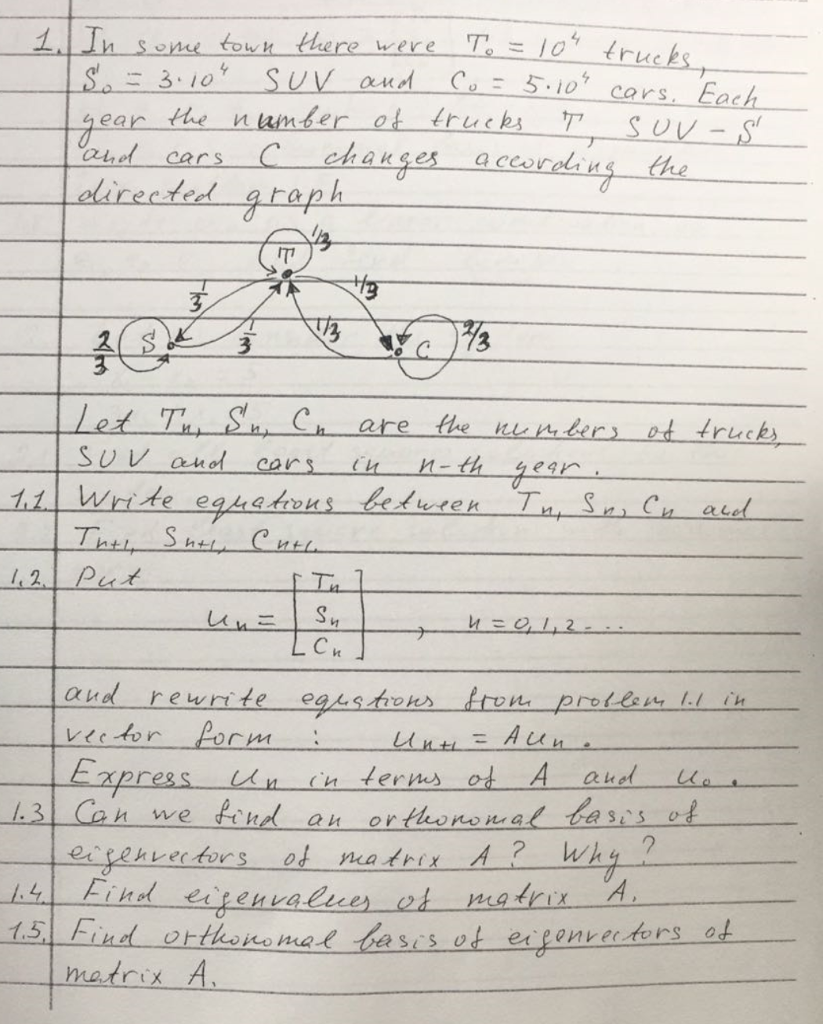 1. In some town there were T₀ = 10⁴ trucks,
S₀ = 3·10⁴ SUV and C₀ = 5·10⁴ cars. Each
year the number of trucks T, SUV – S
and cars C changes according the
directed graph
T 1/3
1/3 1/3
2/3 S 1/3 1/3 C 2/3
Let Tn, Sn, Cn are the numbers of trucks,
SUV and cars in n-th year.
1.1. Write equations between Tn, Sn, Cn and
Tn+1, Sn+1, Cn+1.
1.2. Put
un = [Tn Sn Cn] , n = 0, 1, 2 ...
and rewrite equations from problem 1.1 in
vector form : un+1 = Aun.
Express un in terms of A and u₀.
1.3 Can we find an orthonomal basis of
eigenvectors of matrix A? Why?
1.4. Find eigenvalues of matrix A.
1.5. Find orthonomal basis of eigenvectors of
matrix A.